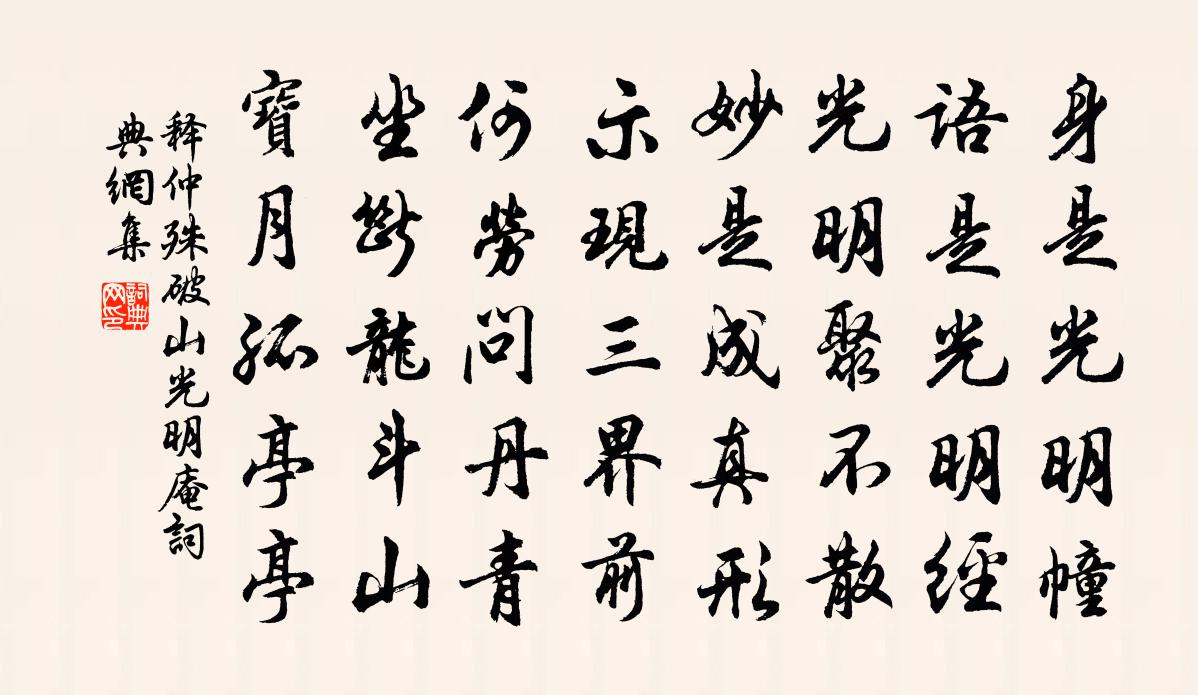 身是光明幢
語是光明經
光明聚不散
妙是成真形
示現三界前
何勞問丹青
坐斷龍斗山
寶月孤亭亭
释仲殊破山光明庵詞
典網集
詞典
网印